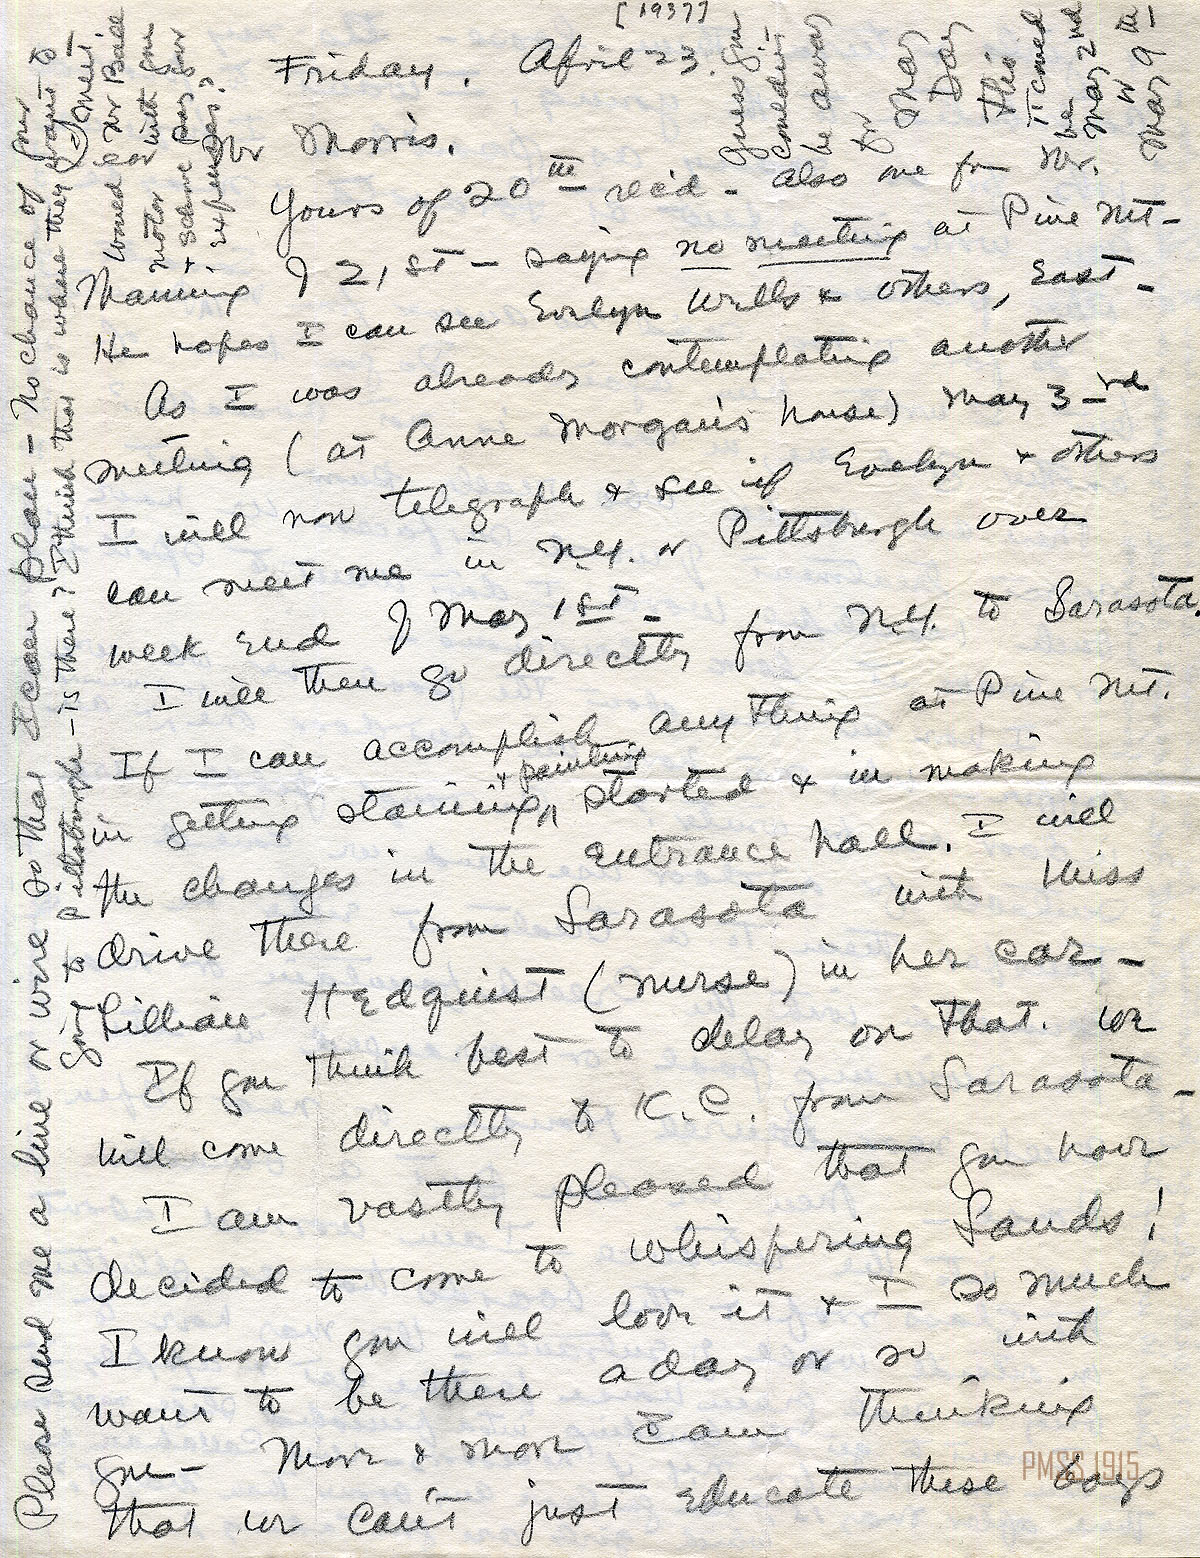 [1937]
Friday. April 23.
Mr Morris.
Yours of 20th rec'd - also one from Mr.
Manning of 21st - saying no meeting at Pine Mt -
He hopes I can see Evelyn Wells & others, East -
As I was already contemplating another
meeting (at Anne Morgan's house) May 3rd
I will now telegraph & see if Evelyn & others
can meet me in N.Y. or Pittsburgh over
week end of May 1st -
I will then go directly from N.Y. to Sarasota.
If I can accomplish anything at Pine Mt.
in getting staining & painting started & in making
the changes in the entrance hall. I will
drive there from Sarasota with Miss
Lillian Hedquist (nurse) in her car -
If you think best to delay on that. we
will come directly to K.C. from Sarasota -
I am vastly pleased that you have
decided to come to Whispering Sands!
I know you will love it & I so much
want to be there a day or so with
you - More & more I am thinking
that we can't just educate these boys
Please send me a line or wire so that I can plan - No chance of your
to Pittsburgh - is there? I think that is where they want to
meet.
Would Mr Baile
motor with you
& share car
& expenses?
Guess you
couldn't
be away
for May
Day
this
It could
be
May 2nd
or
May 9th -
PMSS 1915